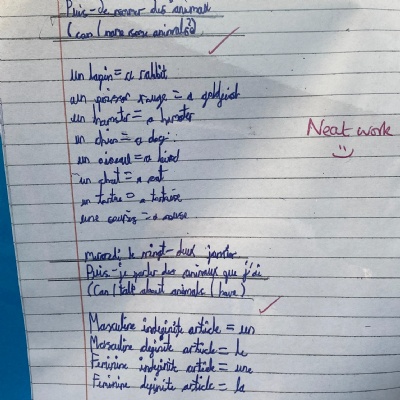 Puis-je nommer des animaux
(can I name some animals?)
un lapin = a rabbit
un poisson rouge = a goldfish
un hamster = a hamster
un chien = a dog
un oiseau = a bird
un chat = a cat
un tortue = a tortoise
une souris = a mouse
Neat work
Mercredi le vingt-deux janvier
Puis-je parler des animaux que j'ai
(Can I talk about animals I have)
Masculine indefinite article = un
Masculine definite article = le
Feminine indefinite article = une
Feminine definite article = la